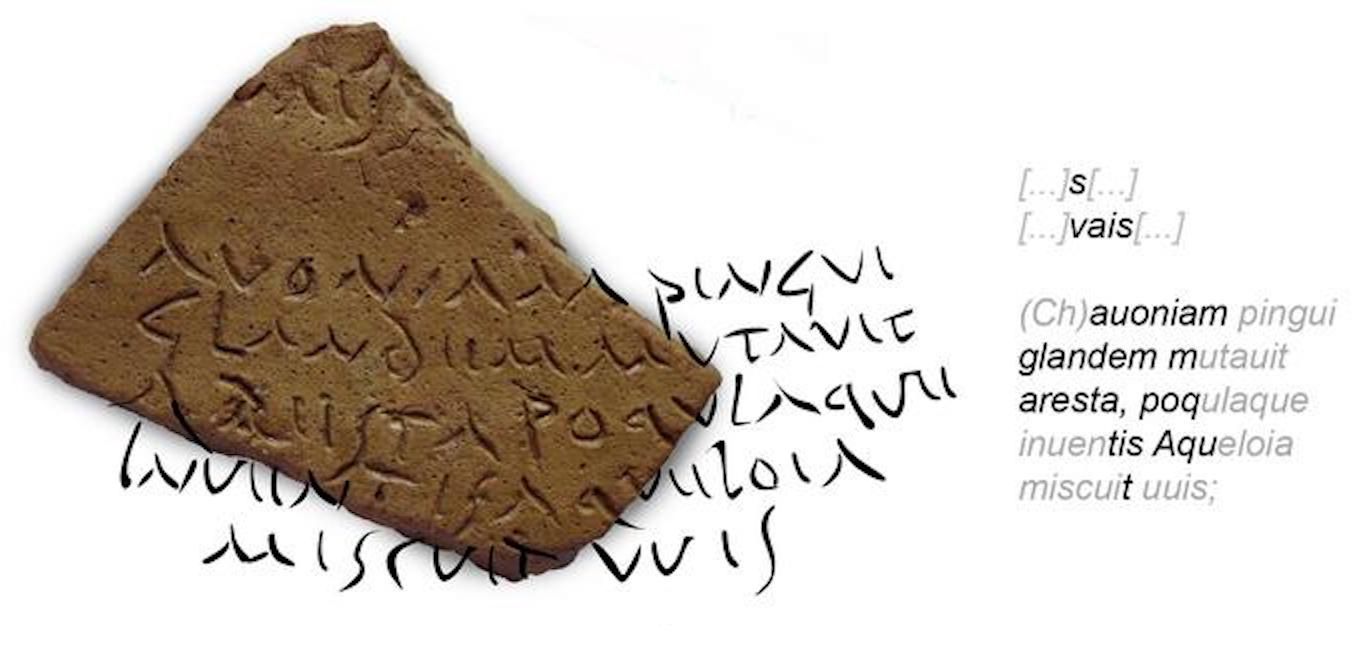 auoniam pingui
glandem mutauit
aresta poqulaque
inuentis Aqueloia
miscuit uuis
[...]s[...]
[...]vais[...]
(Ch)auoniam pingui
glandem mutauit
aresta, poqulaque
inuentis Aqueloia
miscuit uuis;